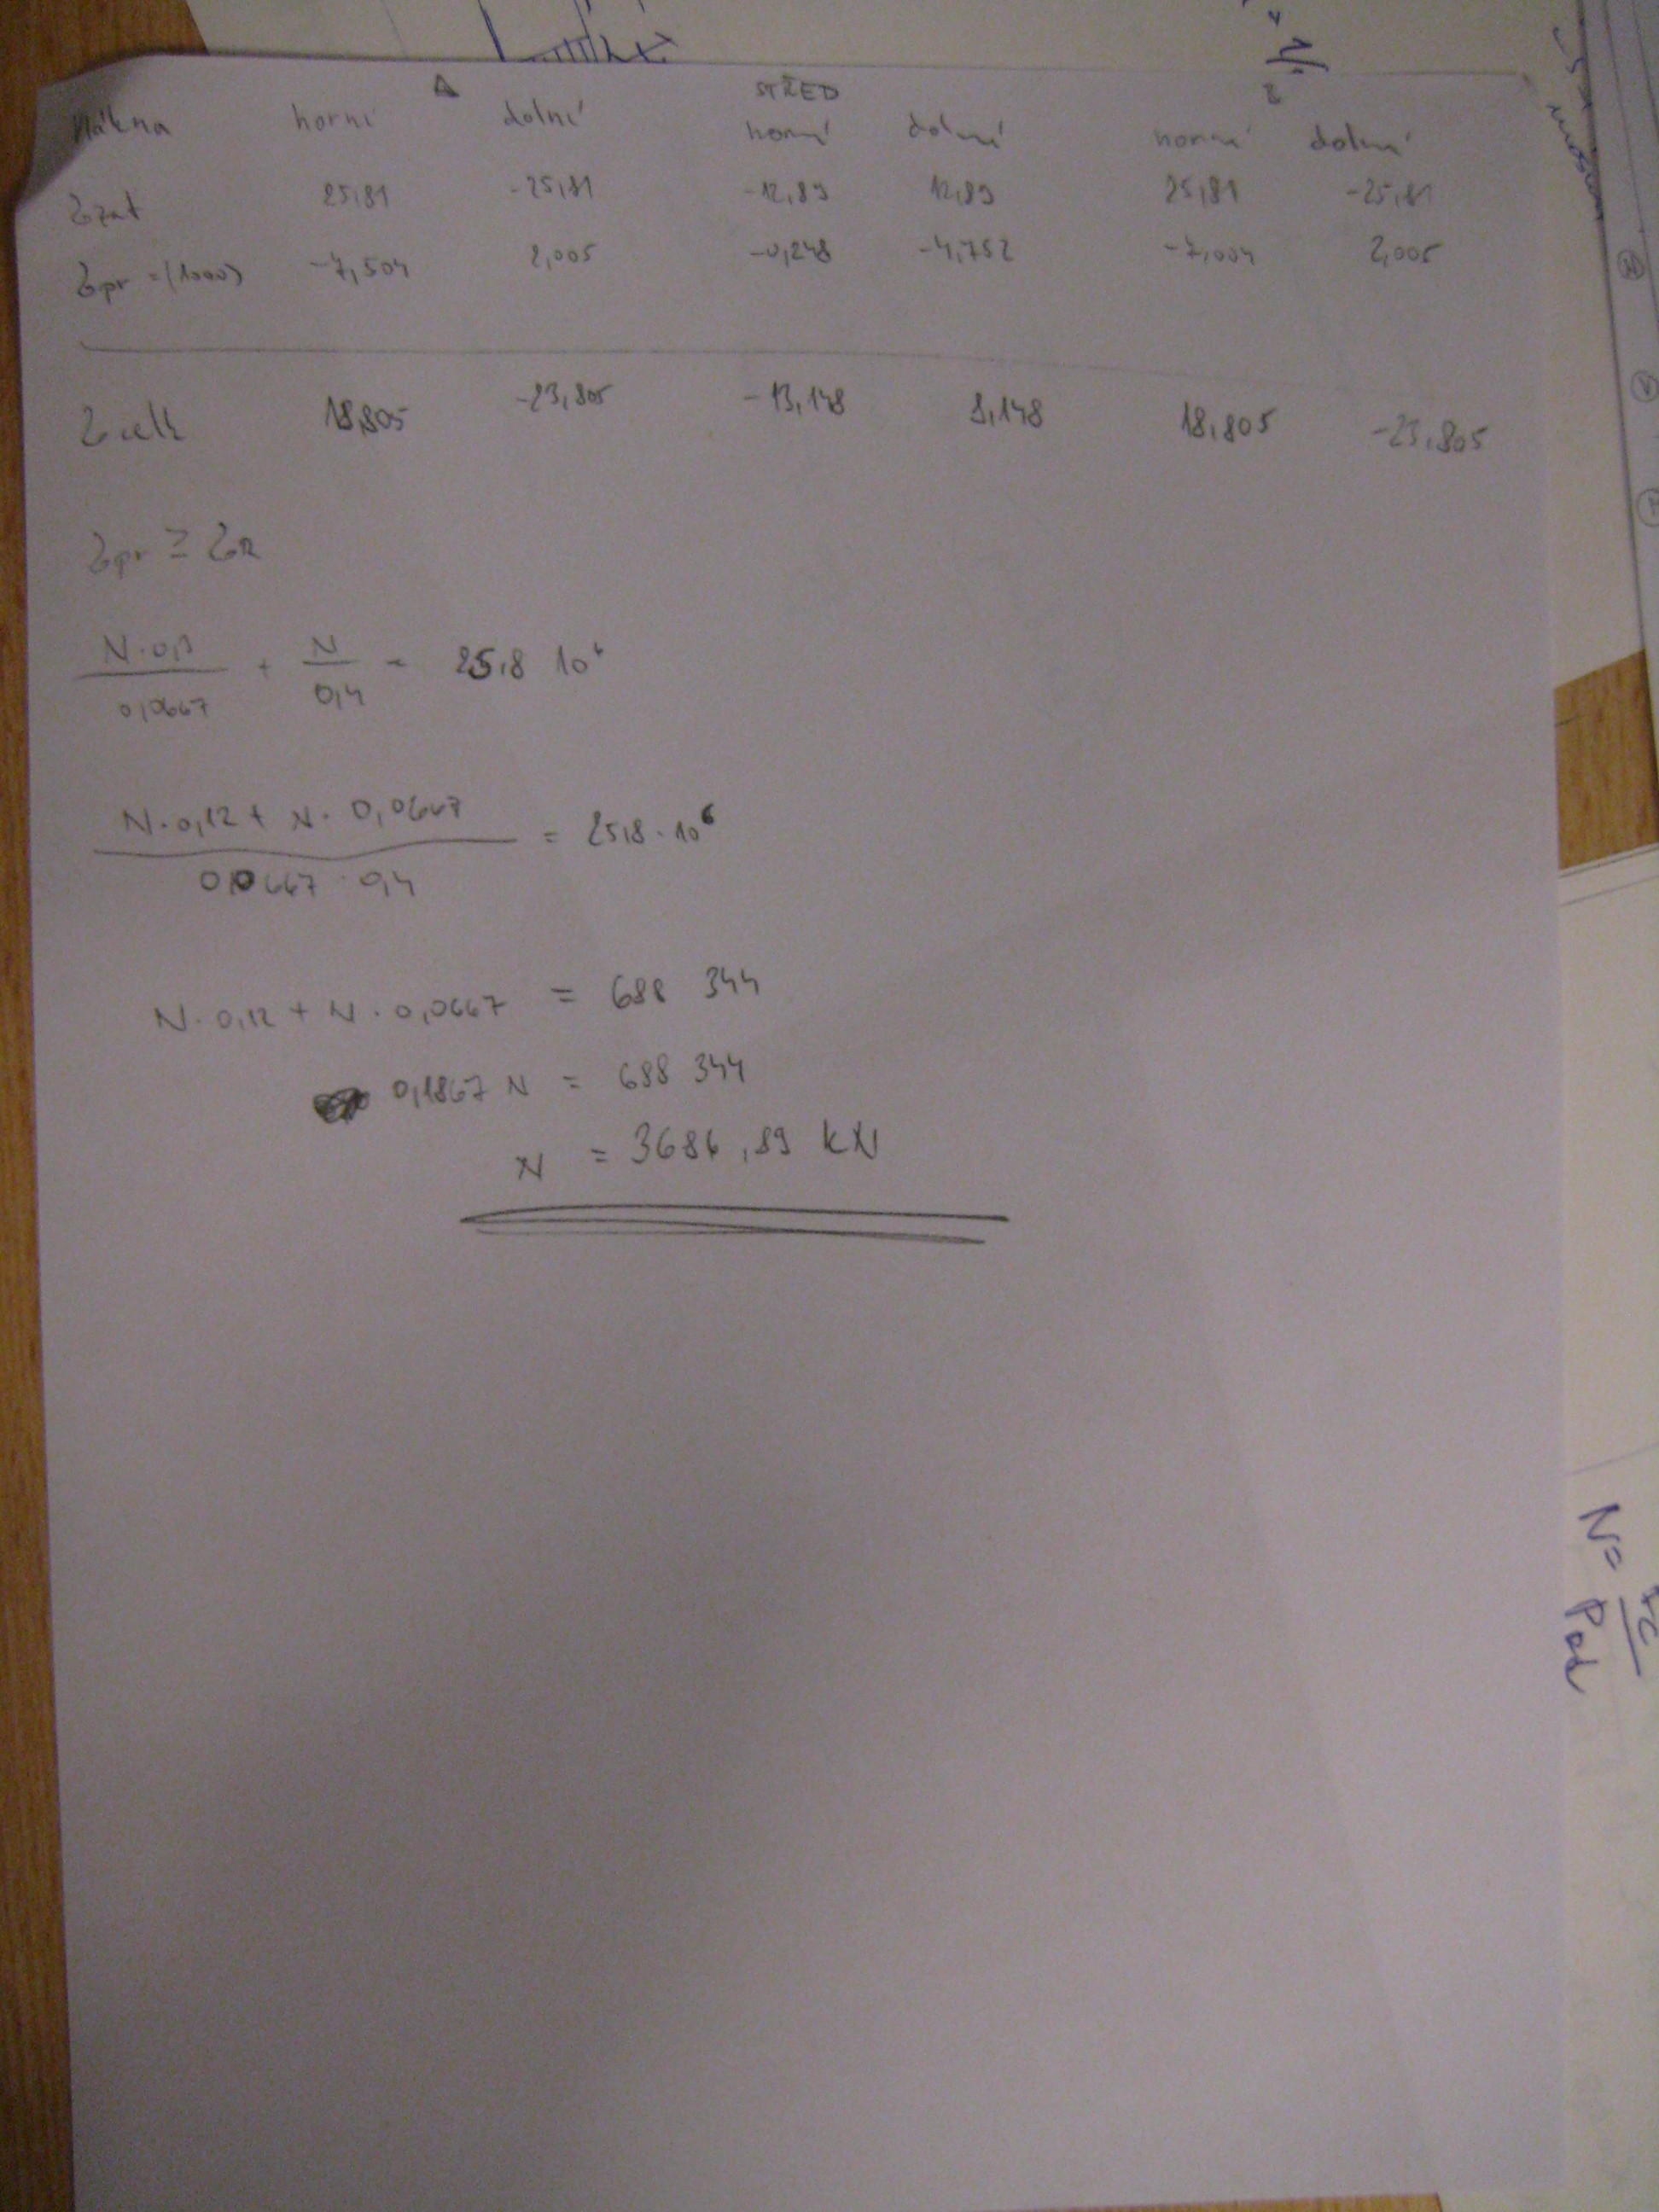 STŘED
vlákna horní dolní horní dolní horní dolní
σzat 25,81 -25,81 -12,89 12,89 25,81 -25,81
σpr =(1000) -7,504 2,005 -0,248 -4,752 -7,004 2,005
σcelk 18,805 -23,805 -13,148 8,148 18,805 -23,805
N·0,3 / 0,0667 + N / 0,4 = 25,8 10⁶
N·0,12 + N·0,0667 / 0,0667 · 0,4 = 25,8·10⁶
N·0,12 + N·0,0667 = 688 344
0,1867 N = 688 344
N = 3686,89 kN
N=